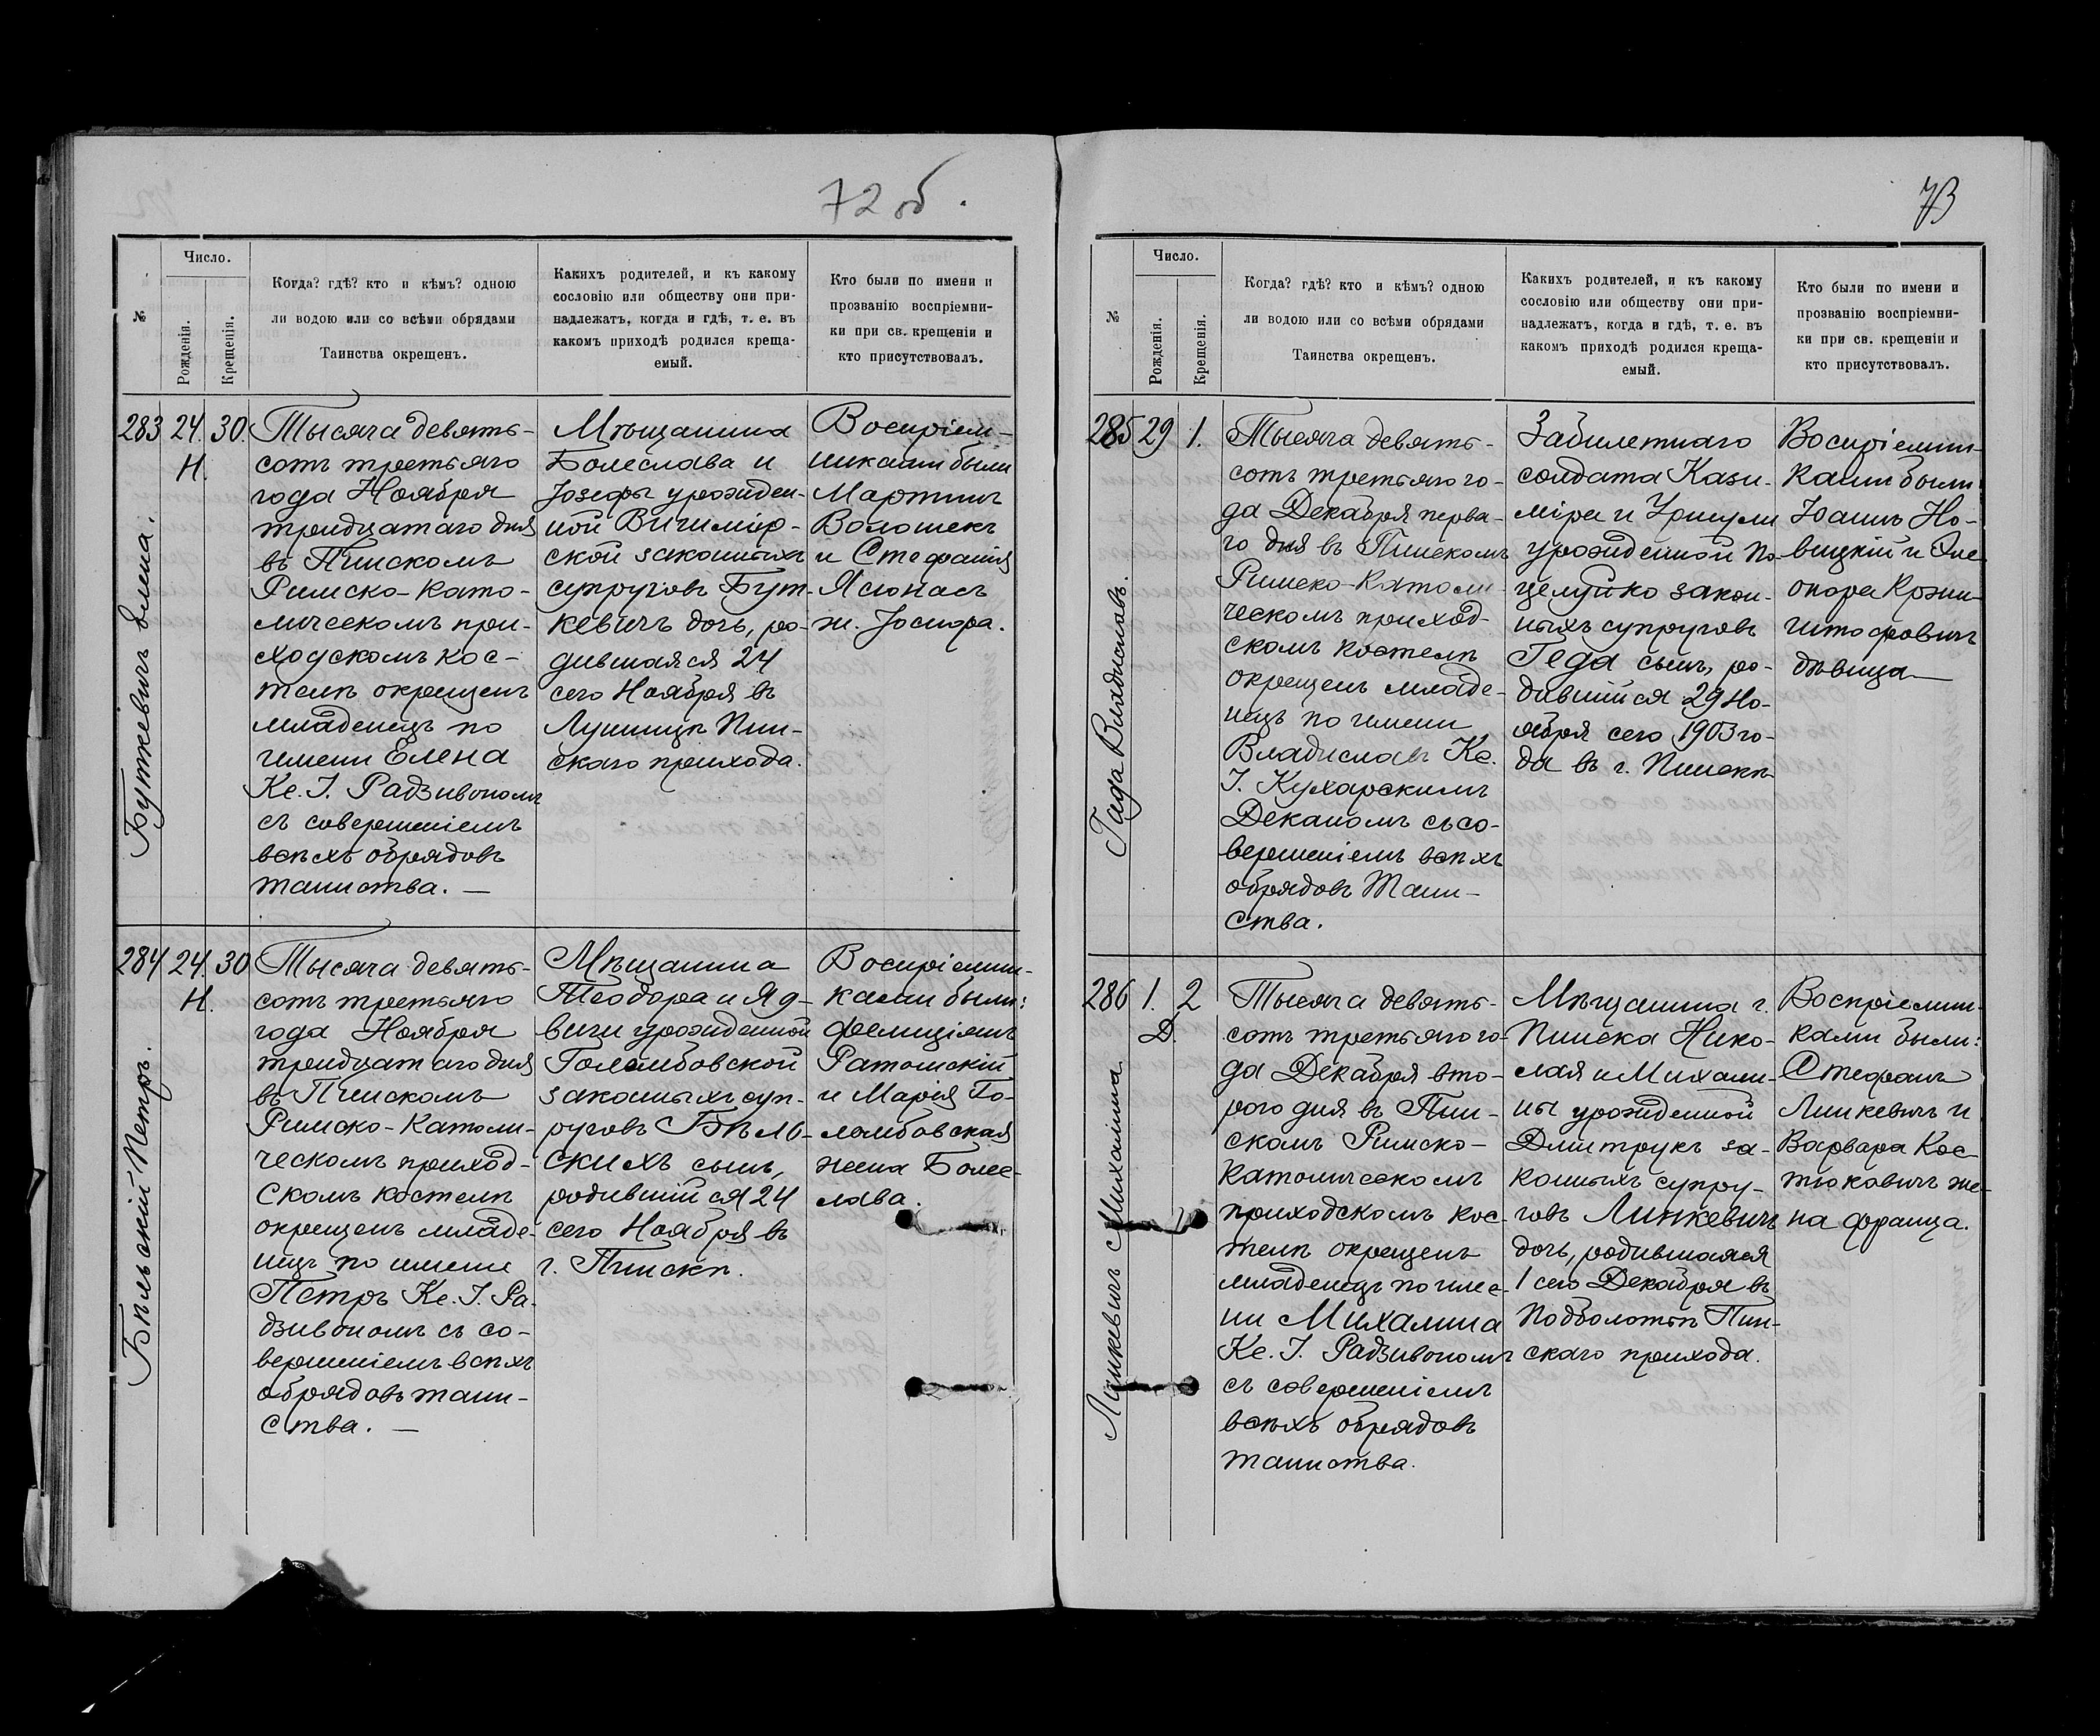 72 об.
№
Число.
Рожденія.
Крещенія.
Когда? гдѣ? кто и кѣмъ? одною
ли водою или со всѣми обрядами
Таинства окрещенъ.
Какихъ родителей, и къ какому
сословію или обществу они при-
надлежатъ, когда и гдѣ, т. е. въ
какомъ приходѣ родился креща-
емый.
Кто были по имени и
прозванію воспріемни-
ки при св. крещеніи и
кто присутствовалъ.
283
Буткевичъ Елена.
24.
Н.
30.
Тысяча девять-
сотъ третьяго
года Ноября
тридцатаго дня
въ Пинскомъ
Римско-Като-
лическомъ при-
ходскомъ кос-
телѣ окрещенъ
младенецъ по
имени Елена
Кс. І. Радзивономъ
съ совершеніемъ
всѣхъ обрядовъ
таинства. —
Мѣщанина
Болеслава и
Іозефы урожден-
ной
ской законныхъ
супруговъ Бут-
кевичъ дочь, ро-
дившаяся 24
сего Ноября въ
Лунинцѣ Пин-
скаго прихода.
Воспріем-
никами были
Мартинъ
Волошекъ
и Стефанія
Ясюнасъ
ж. Іосифа.
284
Бѣльскій Петръ.
24.
Н.
30
Тысяча девять-
сотъ третьяго
года Ноября
тридцатаго дня
въ Пинскомъ
Римско-Католи-
ческомъ приход-
скомъ костелѣ
окрещенъ младе-
нецъ по имени
Петръ Кс. І. Ра-
дзивономъ съ со-
вершеніемъ всѣхъ
обрядовъ таин-
ства. —
Мѣщанина
Теодора и Яд-
виги урожденной
Голембовской
законныхъ суп-
руговъ Бѣль-
скихъ сынъ,
родившійся 24
сего Ноября въ
г. Пинскѣ.
Воспріемни-
ками были:
Фелиціанъ
Ратомскій
и Марія Го-
лембовская
жена Болес-
лава.
73
№
Число.
Рожденія.
Крещенія.
Когда? гдѣ? кто и кѣмъ? одною
ли водою или со всѣми обрядами
Таинства окрещенъ.
Какихъ родителей, и къ какому
сословію или обществу они при-
надлежатъ, когда и гдѣ, т. е. въ
какомъ приходѣ родился креща-
емый.
Кто были по имени и
прозванію воспріемни-
ки при св. крещеніи и
кто присутствовалъ.
285
Гида Владиславъ.
29
1.
Тысяча девять-
сотъ третьяго го-
да Декабря перва-
го дня въ Пинскомъ
Римско-Католи-
ческомъ приход-
скомъ костелѣ
окрещенъ младе-
нецъ по имени
Владиславъ Кс.
І. Кухарскимъ
Деканомъ съ со-
вершеніемъ всѣхъ
обрядовъ Таин-
ства.
Забилетнаго
солдата Кази-
міра и Уршули
урожденной По-
целуйко закон-
ныхъ супруговъ
Гида сынъ, ро-
дившійся 29 Но-
ября сего 1903 го-
да въ г. Пинскѣ
Воспріемни-
ками были
Іоаннъ Но-
вицкій и Эле-
онора Кржи-
штофовичъ
дѣвица —
286
Линкевичъ Михалина
1.
Д.
2
Тысяча девять-
сотъ третьяго го-
да Декабря вто-
рого дня въ Пин-
скомъ Римско-
Католическомъ
приходскомъ кос-
телѣ окрещенъ
младенецъ по име-
ни Михалина
Кс. І. Радзивономъ
съ совершеніемъ
всѣхъ обрядовъ
таинства.
Мѣщанина г.
Пинска Нико-
лая и Михали-
ны урожденной
Дмитрукъ за-
конныхъ супру-
говъ Линкевичъ
дочь, родившаяся
1 сего Декабря въ
Подболотьѣ Пин-
скаго прихода.
Воспріемни-
ками были:
Стефанъ
Линкевичъ и
Варвара Кос-
тюковичъ же-
на Франца.